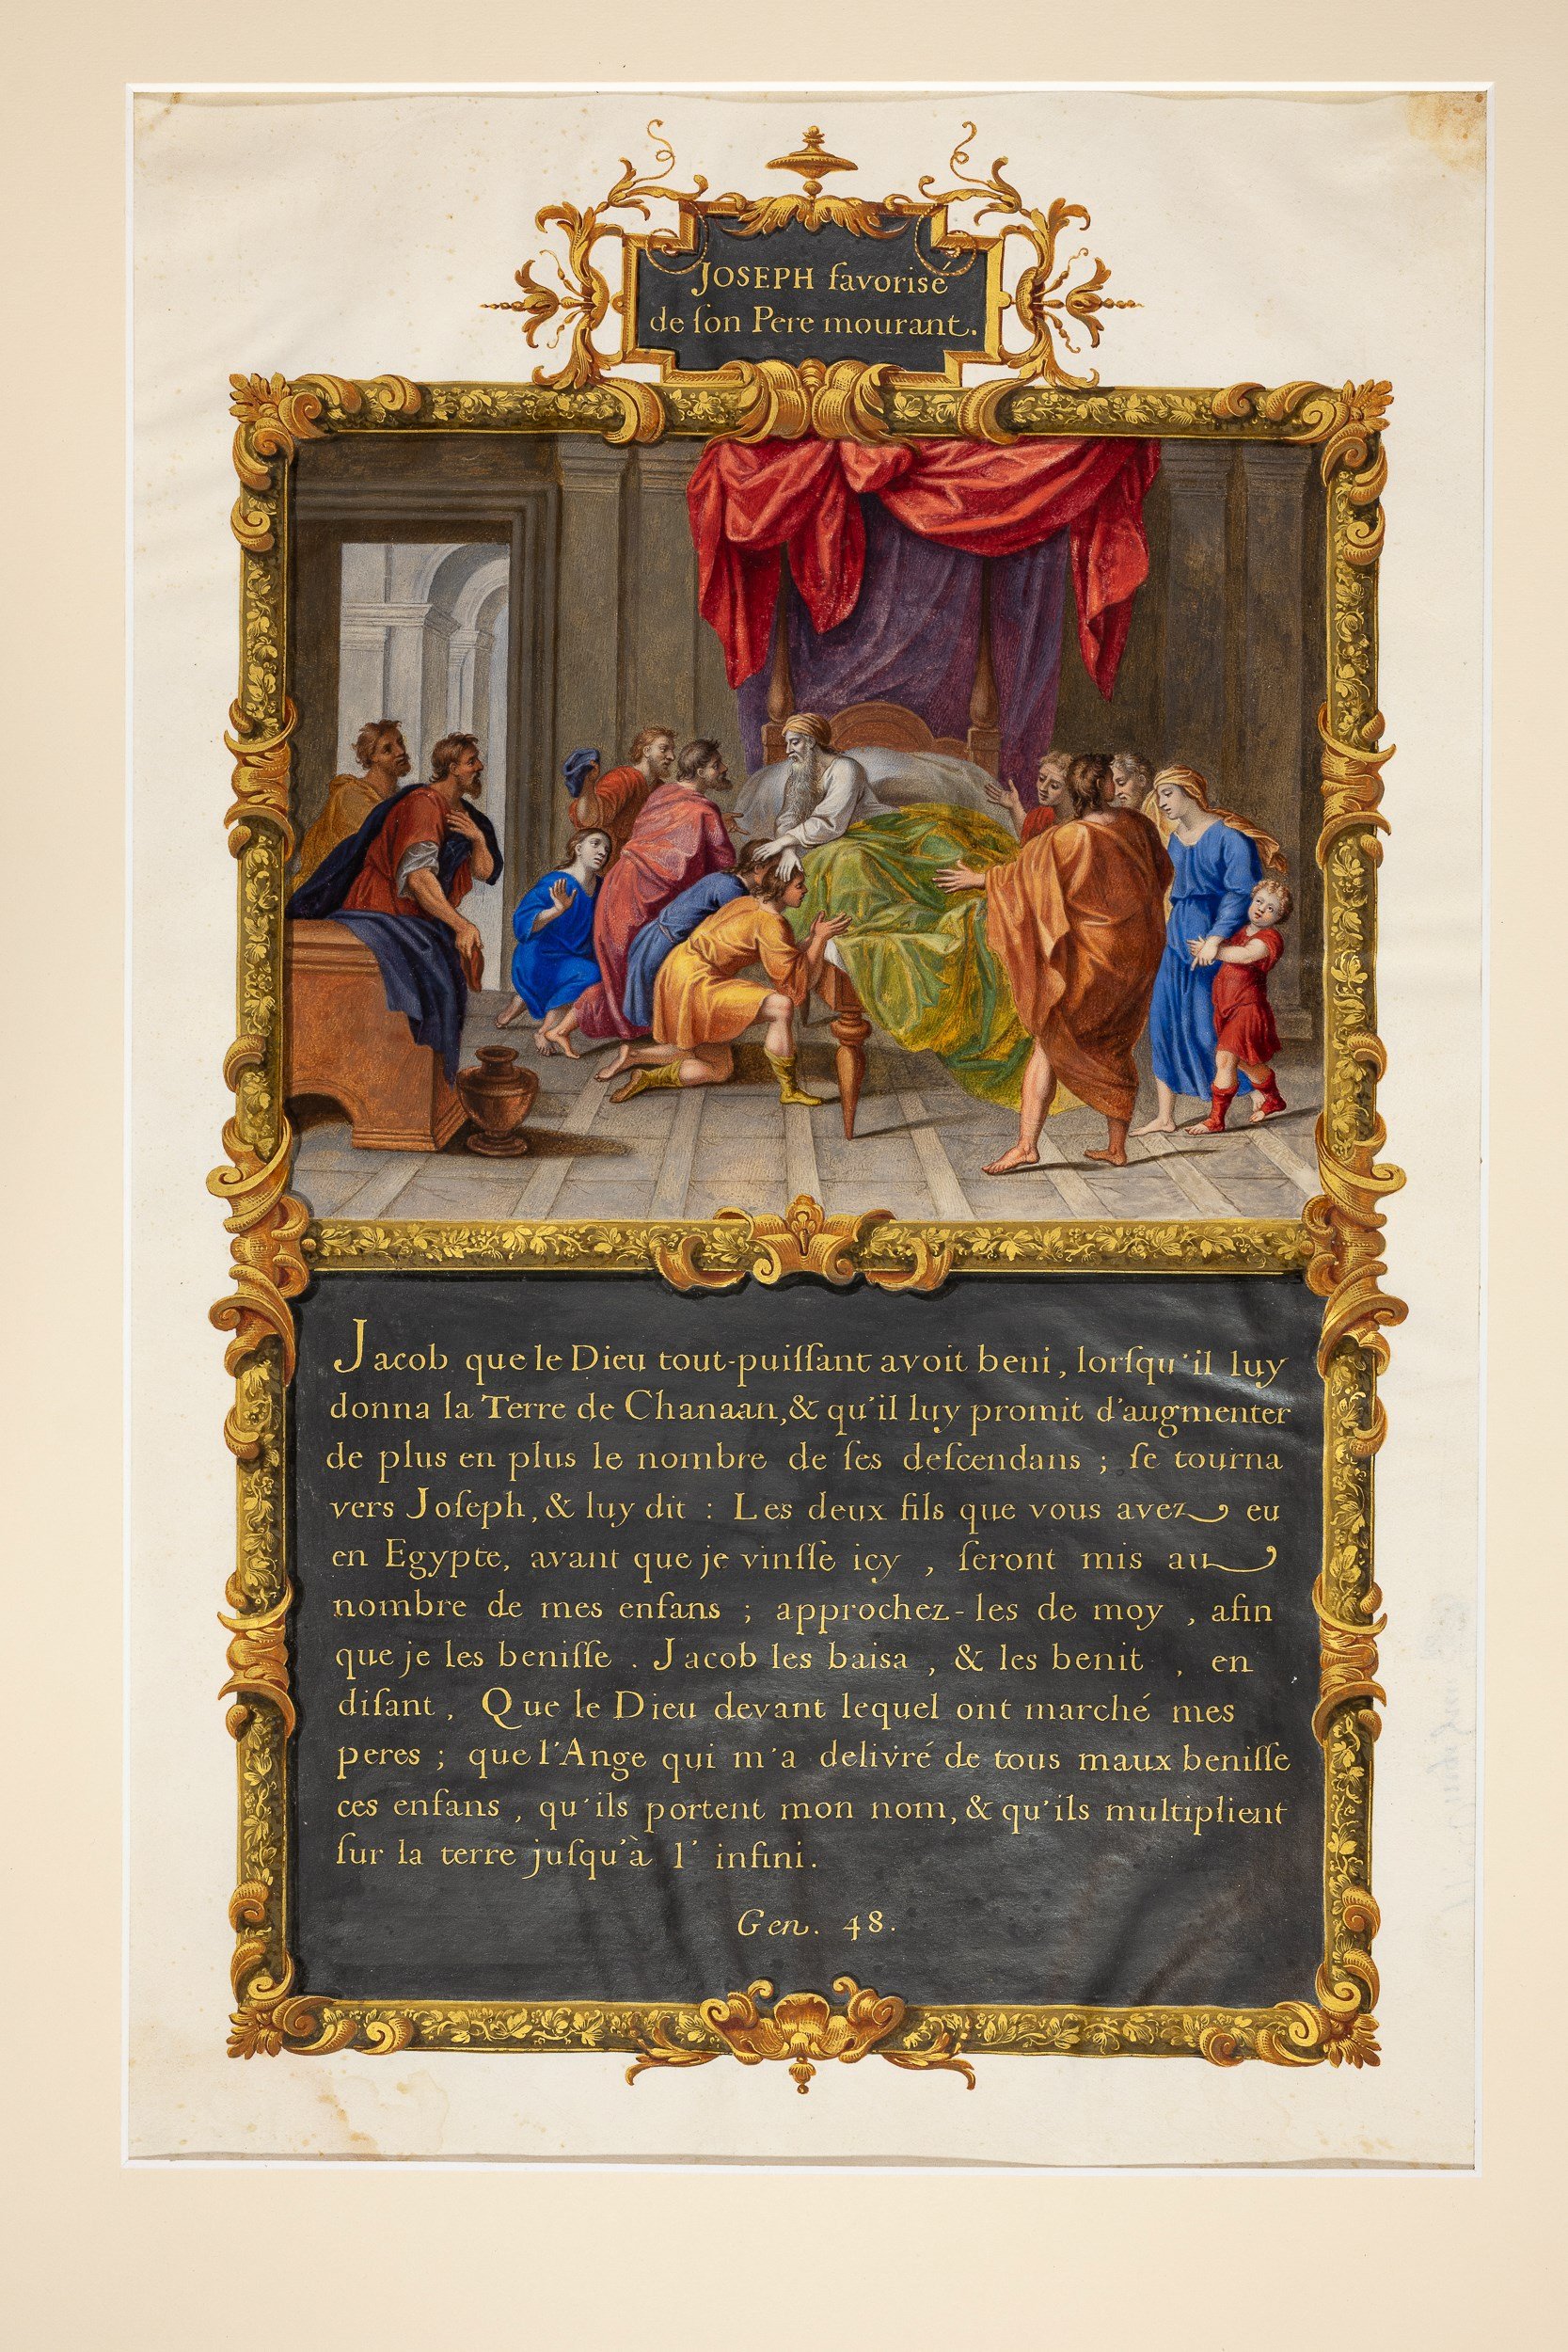 JOSEPH favorisé
de ſon Pere mourant.
Jacob que le Dieu tout-puiſſant avoit beni, lorſqu'il luy
donna la Terre de Chanaan, & qu'il luy promit d'augmenter
de plus en plus le nombre de ſes deſcendans ; ſe tourna
vers Joſeph, & luy dit : Les deux fils que vous avez eu
en Egypte, avant que je vinſſe icy , ſeront mis au
nombre de mes enfans ; approchez-les de moy , afin
que je les beniſſe . Jacob les baisa , & les benit , en
diſant , Que le Dieu devant lequel ont marché mes
peres ; que l'Ange qui m'a delivré de tous maux beniſſe
ces enfans , qu'ils portent mon nom, & qu'ils multiplient
ſur la terre juſqu'à l' infini .
Gen. 48.